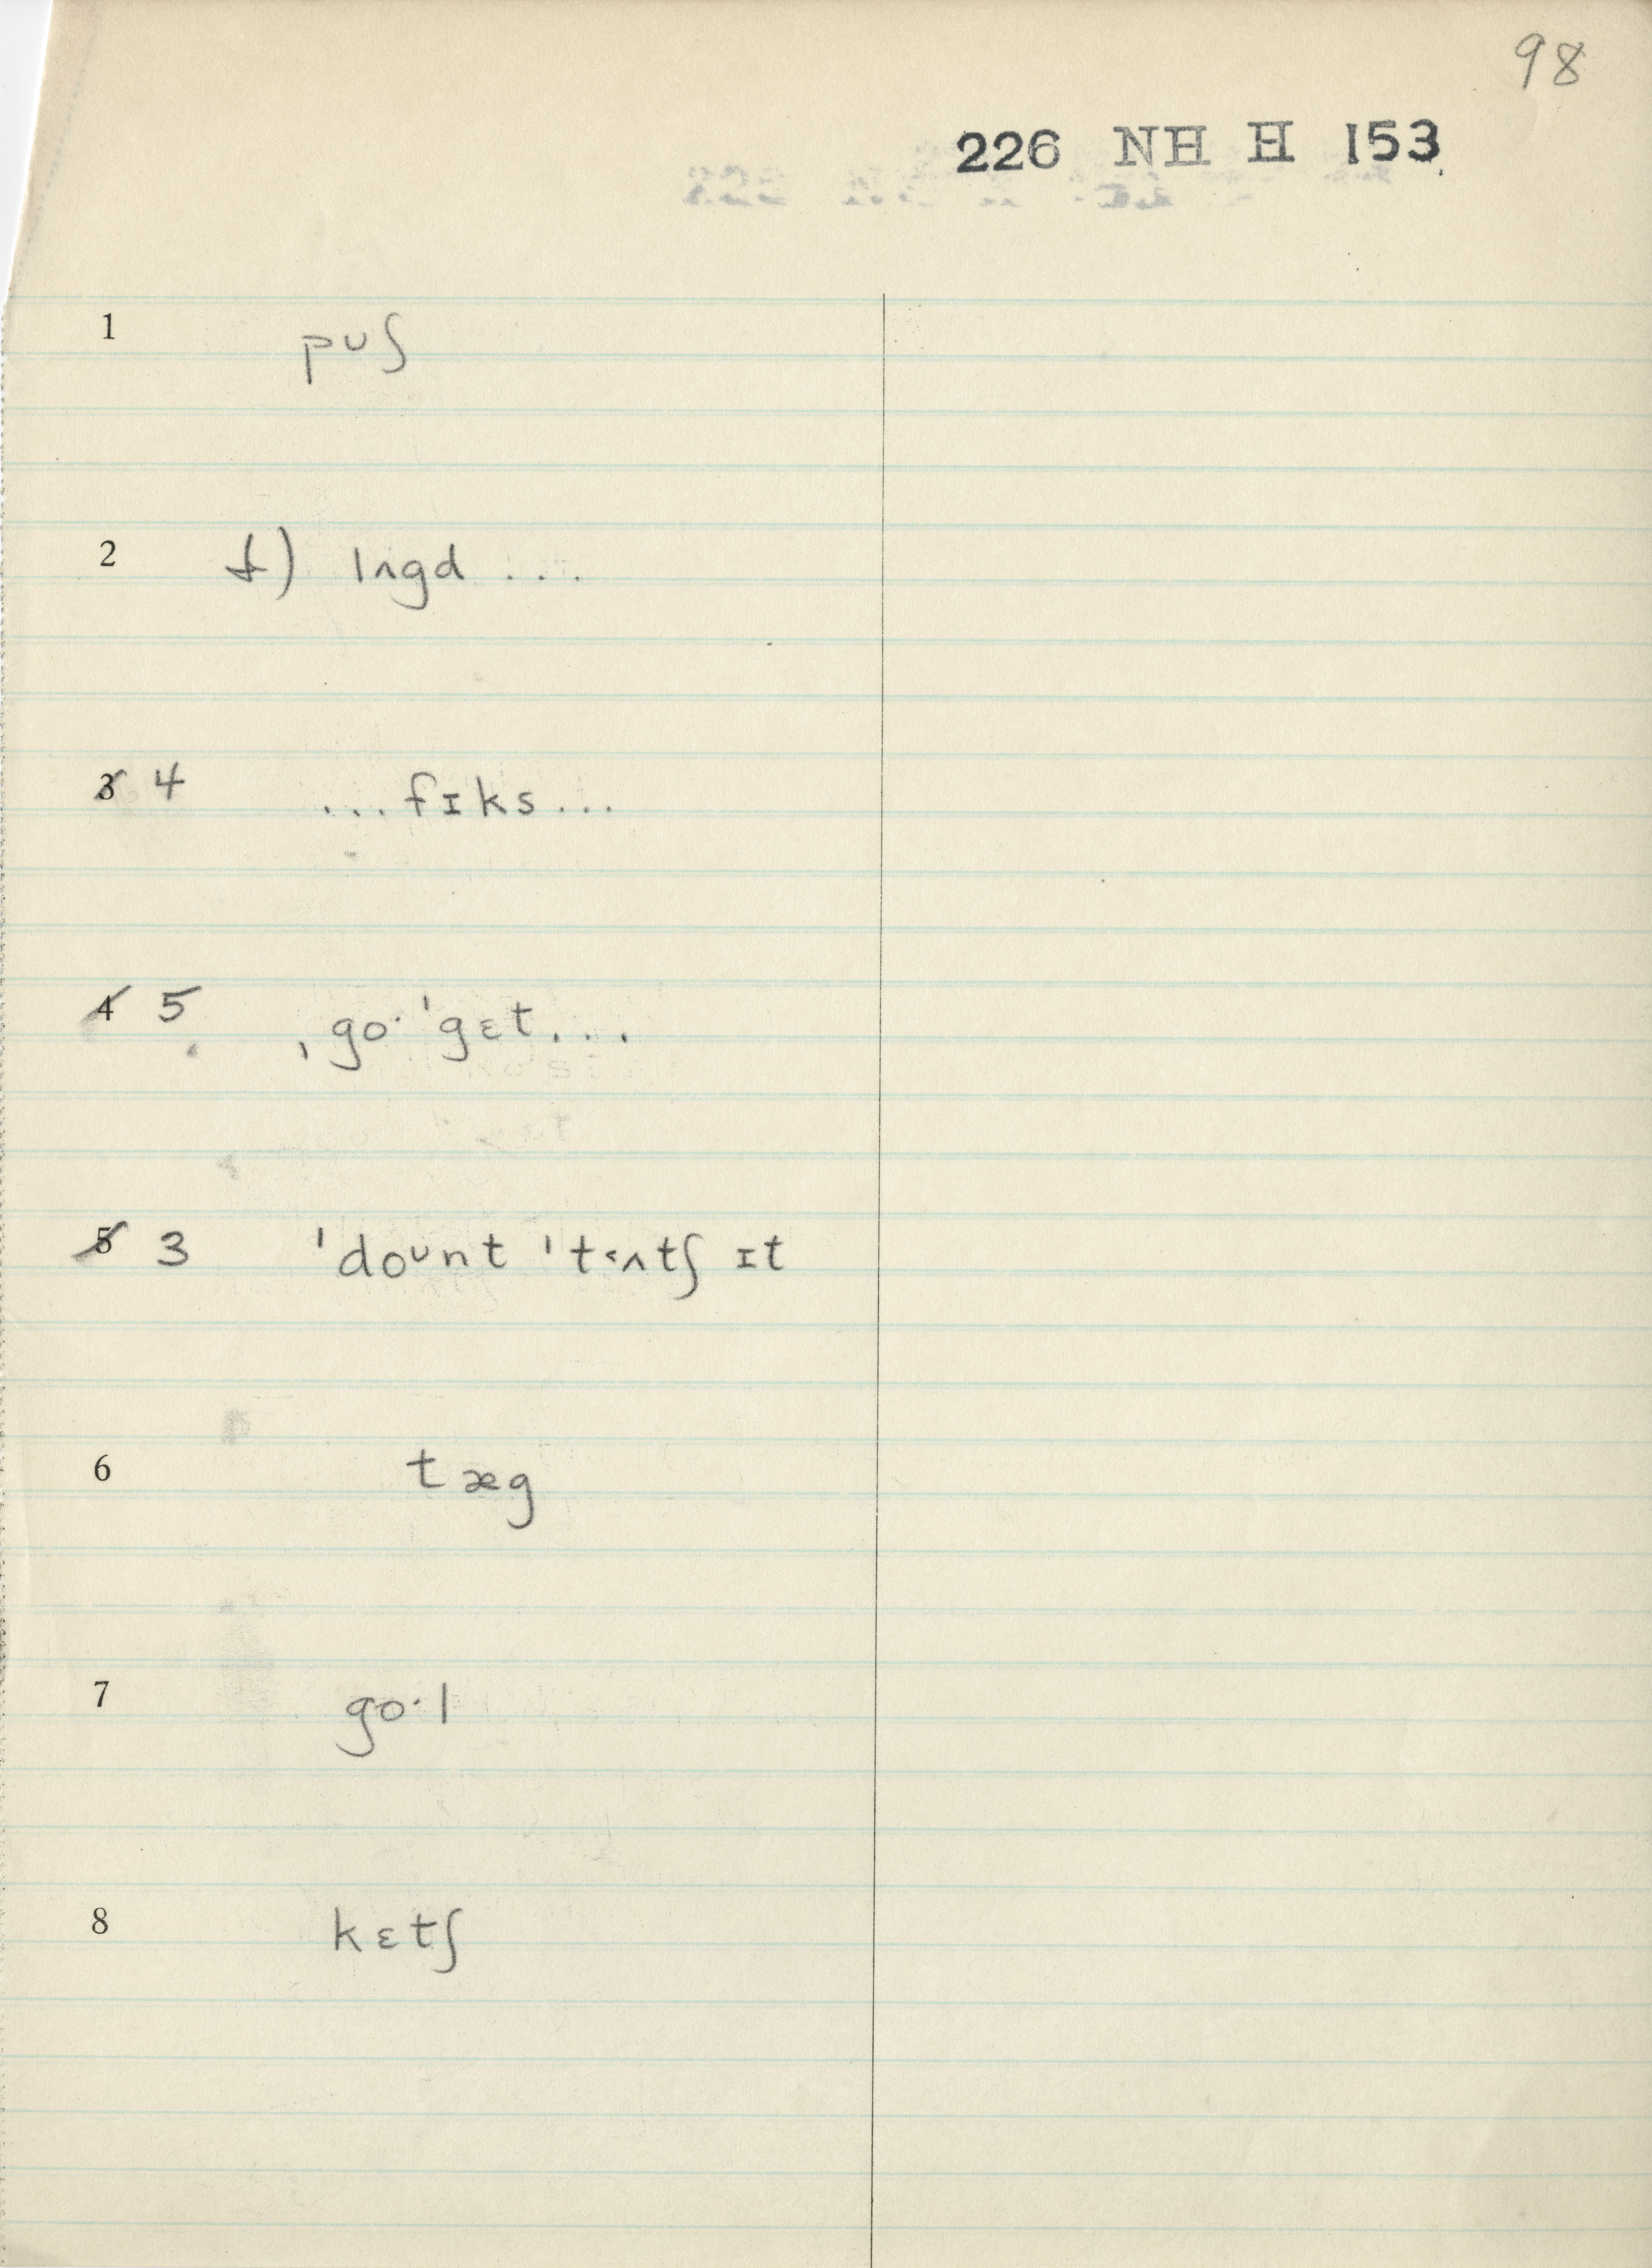 98
226 NH H 153
1 pʊʃ
2 ⊥) lʌgd ...
3 4 ...fɪks...
4 5 ˌgo· ˈgɛt...
5 3 ˈdoᴜnt ˈt˂ʌtʃ ɪt
6 tæg
7 go·l
8 kɛtʃ